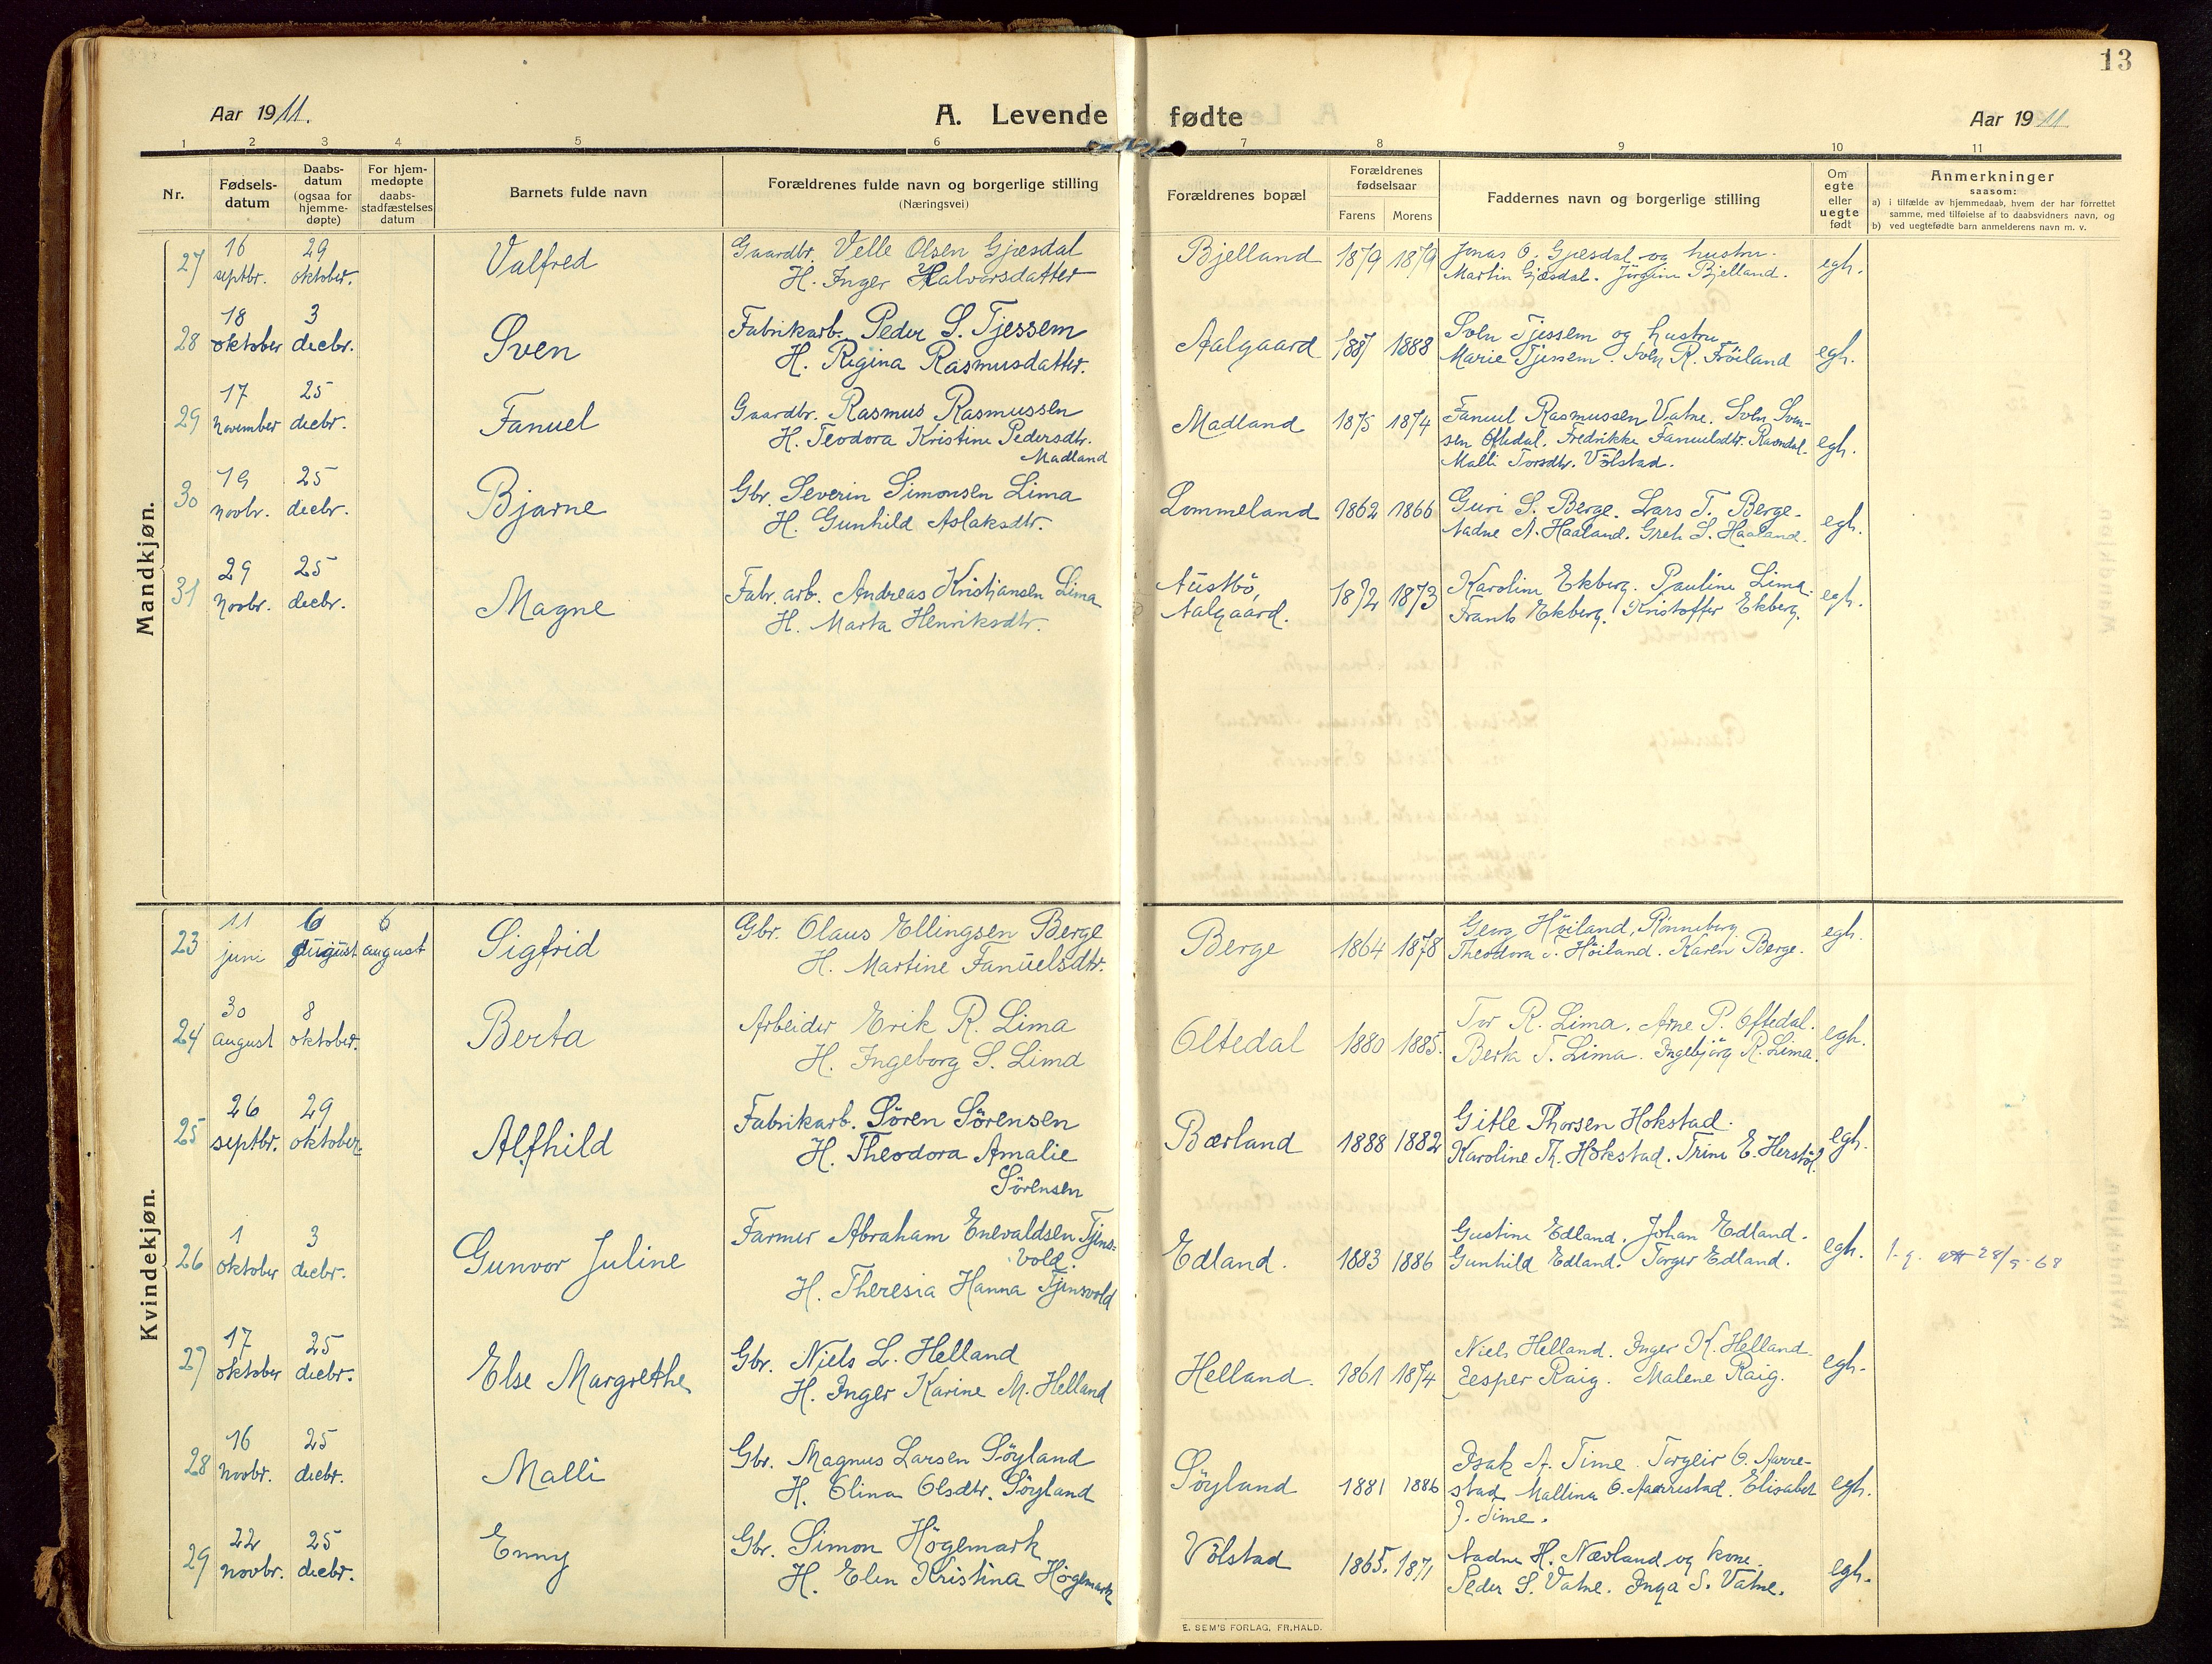 13
Aar 1911.
A. Levende fødte
Aar 1911
1 2 3 4 5 6 7 8 9 10 11
Nr.
Fødsels-
datum
Daabs-
datum
(ogsaa for
hjemme-
døpte)
For hjem-
medøpte
daabs-
stadfæstelses
datum
Barnets fulde navn
Forældrenes fulde navn og borgerlige stilling
(Næringsvei)
Forældrenes bopæl
Forældrenes
fødselsaar
Farens Morens
Faddernes navn og borgerlige stilling
Om
egte
eller
uegte
født
Anmerkninger
saasom:
a) i tilfælde av hjemmedaab, hvem der har forrettet
samme, med tilføielse af to daabsvidners navn, og
b) ved uegtefødte barn anmelderens navn m. v.
Mandkjøn.
27 16 septbr. 29 oktober. Valfred
Gaardbr. Velle Olsen Gjæsdal
H. Inger Halvorsdatter
Bjelland 1879 1879
Jonas O. Gjæsdal og hustru.
Martin Gjæsdal. Jörgine Bjelland.
egh.
28 18 oktober 3 decbr. Sven
Fabrikarb. Peder S. Tjessem
H. Regina Rasmusdatter.
Aalgaard 1887 1888
Sven Tjessem og hustru
Marie Tjessem. Sven R. Fröiland
egh.
29 17 November 25 decbr. Fanuel
Gaardbr. Rasmus Rasmussen
H. Teodora Kristine Pedersdtr.
Madland
Madland 1875 1874
Fanuel Rasmussen Vatne. Sven Sven-
sen Oftedal. Fredrikke Fanuelsdtr. Ravndal.
Malli Torsdtr. Völstad.
egh.
30 19 novbr. 25 decbr. Bjarne
Gbr. Severin Simonsen Lima
H. Gunhild Aslaksdtr.
Lommeland 1862 1866
Guri S. Berge. Lars T. Berge.
Aadne A. Haaland. Greta S. Haaland.
egh.
31 29 Novbr. 25 decbr. Magne
Fabr. arb. Andreas Kristiansen Lima
H. Marta Henriksdtr.
Austbö,
Aalgaard. 1872 1873
Karoline Ekberg. Pauline Lima.
Frants Ekberg. Kristoffer Ekberg.
egh.
Kvindekjøn.
23 11 juni 6 august 6 august Sigfrid
Gbr. Olaus Ellingsen Berge
H. Martine Fanuelsdtr.
Berge 1864 1878
Georg Höiland, Rønneberg
Theodora T. Höiland. Karen Berge.
egh.
24 30 august 8 oktober. Berta
Arbeider Erik R. Lima
H. Ingeborg S. Lima
Oltedal 1880 1885.
Tor R. Lima. Arne P. Oftedal.
Berta T. Lima. Ingebjörg R. Lima.
egh.
25 26 septbr. 29 oktober. Alfhild
Fabrikarb. Sören Sörensen
H. Theodora Amalie
Sörensen
Bærland 1888 1882
Gitle Thorsen Hokstad.
Karoline Th. Hokstad. Trine E. Herstöl.
egh.
26 1 oktober 3 decbr. Gunvor Juline
Farmer Abraham Enevaldsen Tjens-
vold.
H. Theresia Hanna Tjensvold
Edland. 1883 1886
Gustine Edland. Johan Edland.
Gunhild Edland. Torger Edland.
egh.
28/9-68
27 17 oktober 25 decbr. Else Margrethe
Gbr. Niels L. Helland
H. Inger Karine M. Helland
Helland. 1861 1874
Niels Helland. Inger K. Helland.
Jesper Raig. Malene Raig.
egh.
28 16 Novbr. 25 decbr. Malli
Gbr. Magnus Larsen Söyland
H. Olina Olsdtr. Söyland
Söyland 1881 1886
Isak A. Time. Torgeir O. Aarre-
stad Mallina O. Aarrestad. Elisabet
J. Time.
egh.
29 22 novbr. 25 decbr. Enny
Gbr. Simon Högemark
H. Elen Kristina Högemark
Völstad 1865. 1871
Aadne H. Nævland og kone.
Peder S. Vatne. Inga S. Vatne.
egh.
E. SEM'S FORLAG, FR.HALD.